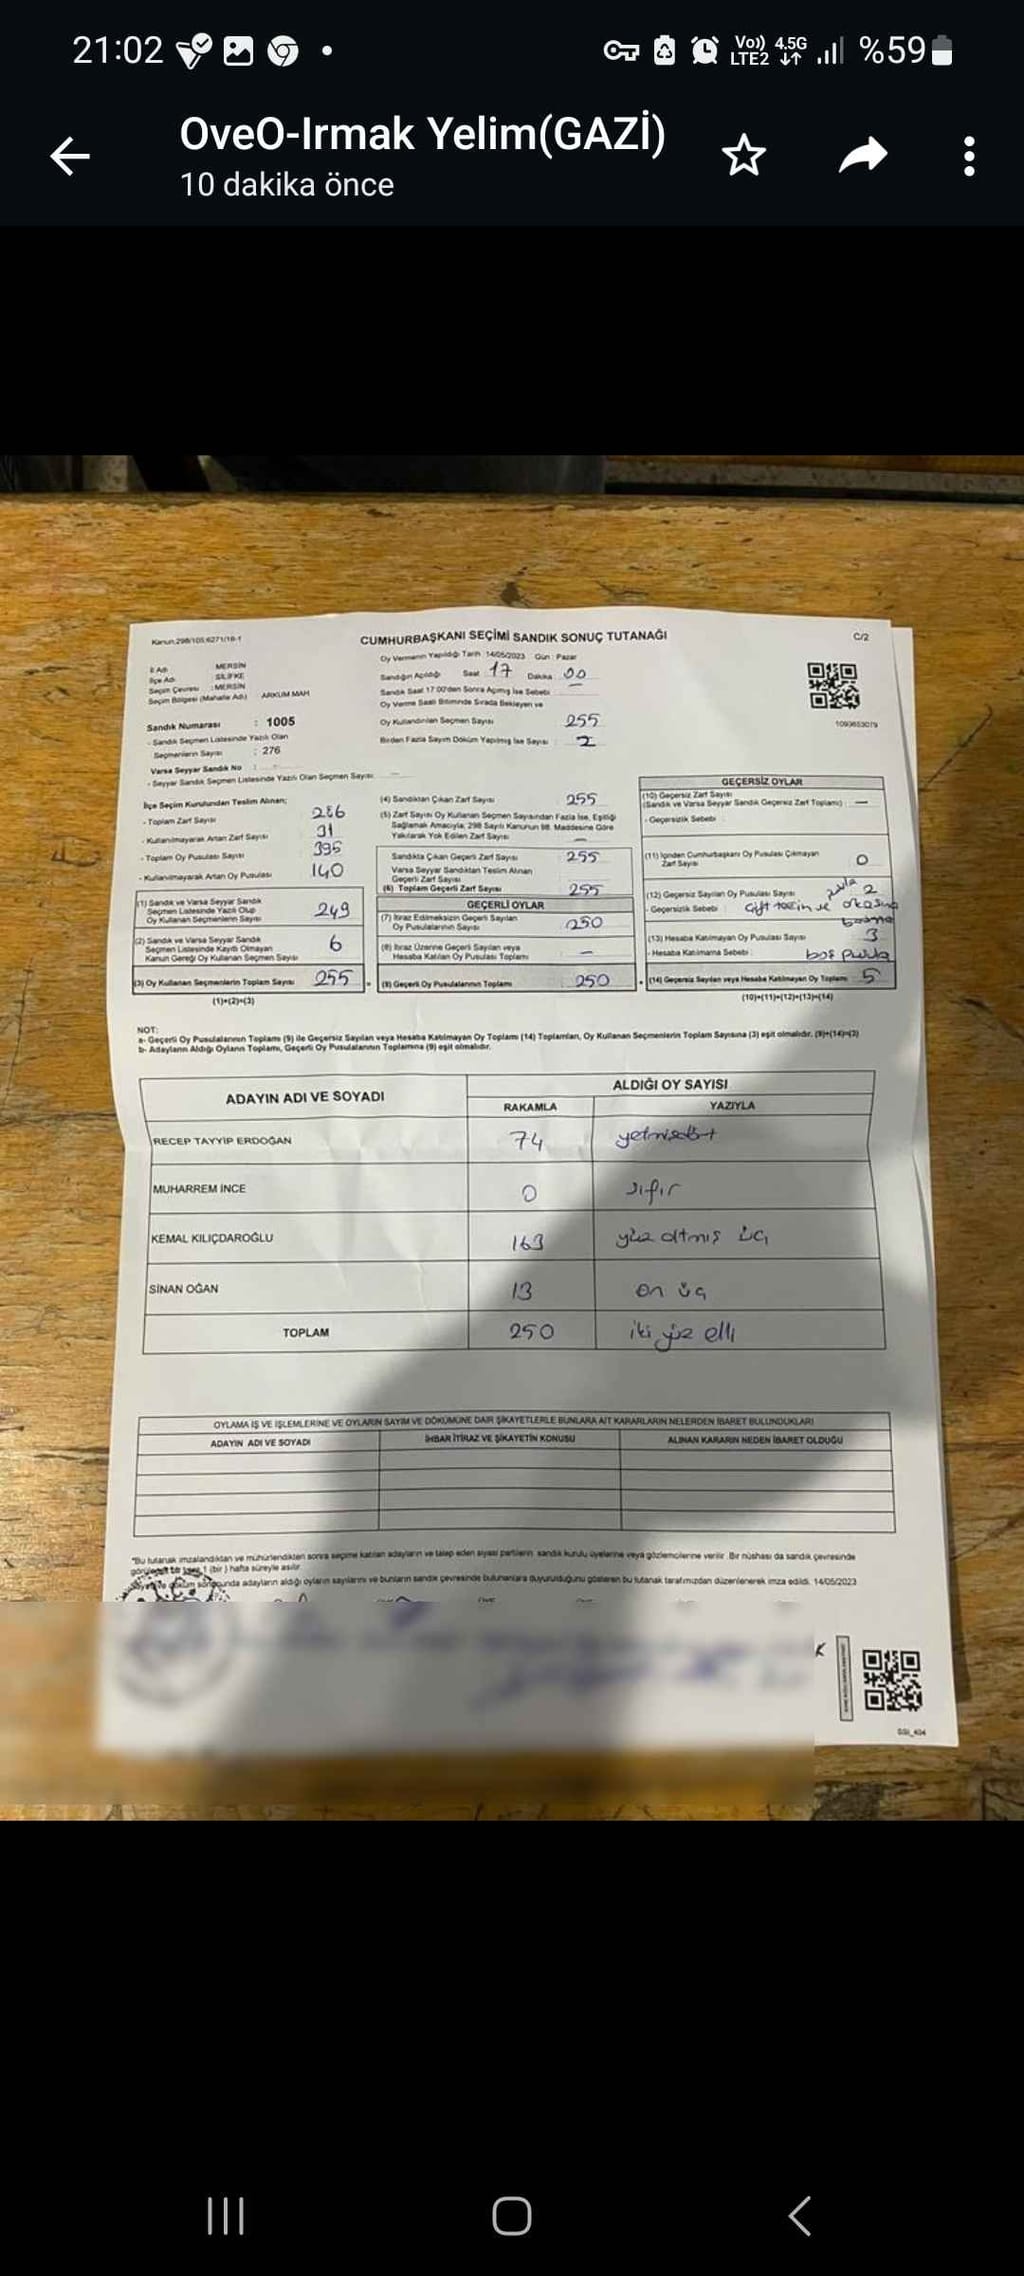 21:02
Vo)) LTE2 4.5G %59
OveO-Irmak Yelim(GAZİ)
10 dakika önce
Kanun.298/105;6271/18-1
CUMHURBAŞKANI SEÇİMİ SANDIK SONUÇ TUTANAĞI
C/2
İl Adı : MERSİN
İlçe Adı : SİLİFKE
Seçim Çevresi : MERSİN
Seçim Bölgesi (Mahalle Adı) ARKUM MAH
Sandık Numarası : 1005
- Sandık Seçmen Listesinde Yazılı Olan
Seçmenlerin Sayısı : 276
Varsa Seyyar Sandık No :
- Seyyar Sandık Seçmen Listesinde Yazılı Olan Seçmen Sayısı
Oy Vermenin Yapıldığı Tarih 14/05/2023 Gün : Pazar
Sandığın Açıldığı Saat 17 Dakika 00
Sandık Saat 17:00'den Sonra Açılmış İse Sebebi
Oy Verme Saati Bitiminde Sırada Bekleyen ve
Oy Kullandırılan Seçmen Sayısı 255
Birden Fazla Sayım Döküm Yapılmış İse Sayısı 2
1093653079
İlçe Seçim Kurulundan Teslim Alınan;
- Toplam Zarf Sayısı 286
- Kullanılmayarak Artan Zarf Sayısı 31
- Toplam Oy Pusulası Sayısı 395
- Kullanılmayarak Artan Oy Pusulası 140
(1) Sandık ve Varsa Seyyar Sandık
Seçmen Listesinde Yazılı Olup
Oy Kullanan Seçmenlerin Sayısı 249
(2) Sandık ve Varsa Seyyar Sandık
Seçmen Listesinde Kayıtlı Olmayan
Kanun Gereği Oy Kullanan Seçmen Sayısı 6
(3) Oy Kullanan Seçmenlerin Toplam Sayısı 255
(1)+(2)=(3)
(4) Sandıktan Çıkan Zarf Sayısı 255
(5) Zarf Sayısı Oy Kullanan Seçmen Sayısından Fazla İse, Eşitliği
Sağlamak Amacıyla, 298 Sayılı Kanunun 98. Maddesine Göre
Yakılarak Yok Edilen Zarf Sayısı
Sandıkta Çıkan Geçerli Zarf Sayısı 255
Varsa Seyyar Sandıktan Teslim Alınan
Geçerli Zarf Sayısı
(6) Toplam Geçerli Zarf Sayısı 255
GEÇERLİ OYLAR
(7) İtiraz Edilmeksizin Geçerli Sayılan
Oy Pusulalarının Sayısı 250
(8) İtiraz Üzerine Geçerli Sayılan veya
Hesaba Katılan Oy Pusulası Toplamı –
(9) Geçerli Oy Pusulalarının Toplamı 250
GEÇERSİZ OYLAR
(10) Geçersiz Zarf Sayısı
(Sandık ve Varsa Seyyar Sandık Geçersiz Zart Toplamı) : —
- Geçersizlik Sebebi :
(11) İçinden Cumhurbaşkanı Oy Pusulası Çıkmayan
Zarf Sayısı 0
(12) Geçersiz Sayılan Oy Pusulası Sayısı 2
- Geçersizlik Sebebi : çift tercih ve arkasına
basma
(13) Hesaba Katılmayan Oy Pusulası Sayısı 3
- Hesaba Katılmama Sebebi : boş pusula
(14) Geçersiz Sayılan veya Hesaba Katılmayan Oy Toplamı 5
(10)+(11)+(12)+(13)=(14)
NOT:
a- Geçerli Oy Pusulalarının Toplamı (9) ile Geçersiz Sayılan veya Hesaba Katılmayan Oy Toplamı (14) Toplamları, Oy Kullanan Seçmenlerin Toplam Sayısına (3) eşit olmalıdır. (9)+(14)=(3)
b- Adayların Aldığı Oyların Toplamı, Geçerli Oy Pusulalarının Toplamına (9) eşit olmalıdır.
ADAYIN ADI VE SOYADI
ALDIĞI OY SAYISI
RAKAMLA YAZIYLA
RECEP TAYYİP ERDOĞAN 74 yetmişdört
MUHARREM İNCE 0 sıfır
KEMAL KILIÇDAROĞLU 163 yüz altmış üç
SİNAN OĞAN 13 on üç
TOPLAM 250 iki yüz elli
OYLAMA İŞ VE İŞLEMLERİNE VE OYLARIN SAYIM VE DÖKÜMÜNE DAİR ŞİKAYETLERLE BUNLARA AİT KARARLARIN NELERDEN İBARET BULUNDUKLARI
ADAYIN ADI VE SOYADI İHBAR İTİRAZ VE ŞİKAYETİN KONUSU ALINAN KARARIN NEDEN İBARET OLDUĞU
*Bu tutanak imzalandıktan ve mühürlendikten sonra seçime katılan adayların ve talep eden siyasi partilerin sandık kurulu üyelerine veya gözlemcilerine verilir. Bir nüshası da sandık çevresinde
görülebilir bir yere 1 (bir) hafta süreyle asılır.
sonunda adayların aldığı oyların sayılarını ve bunların sandık çevresinde bulunanlara duyurulduğunu gösteren bu tutanak tarafımızdan düzenlenerek imza edildi. 14/05/2023
K